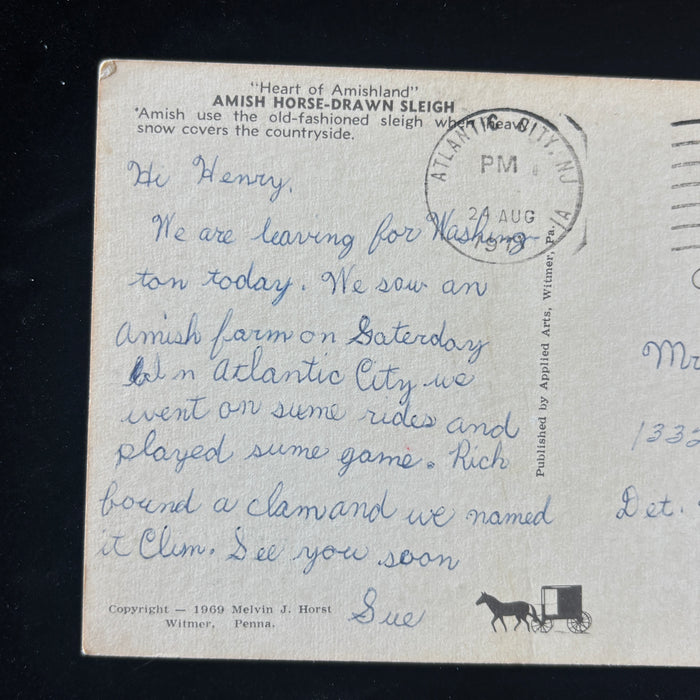 "Heart of Amishland"
AMISH HORSE-DRAWN SLEIGH
"Amish use the old-fashioned sleigh when heavy
snow covers the countryside.
ATLANTIC CITY, NJ
PM
AUG
Hi Henry,
We are leaving for Washing-
ton today. We saw an
Amish farm on Saterday
In Atlantic City we
went on sume rides and
played sume game. Rich
found a clam and we named
it Clem. See you soon
Sue
Published by Applied Arts, Witmer, Pa.
Copyright — 1969 Melvin J. Horst
Witmer, Penna.
Mr
1332
Det.